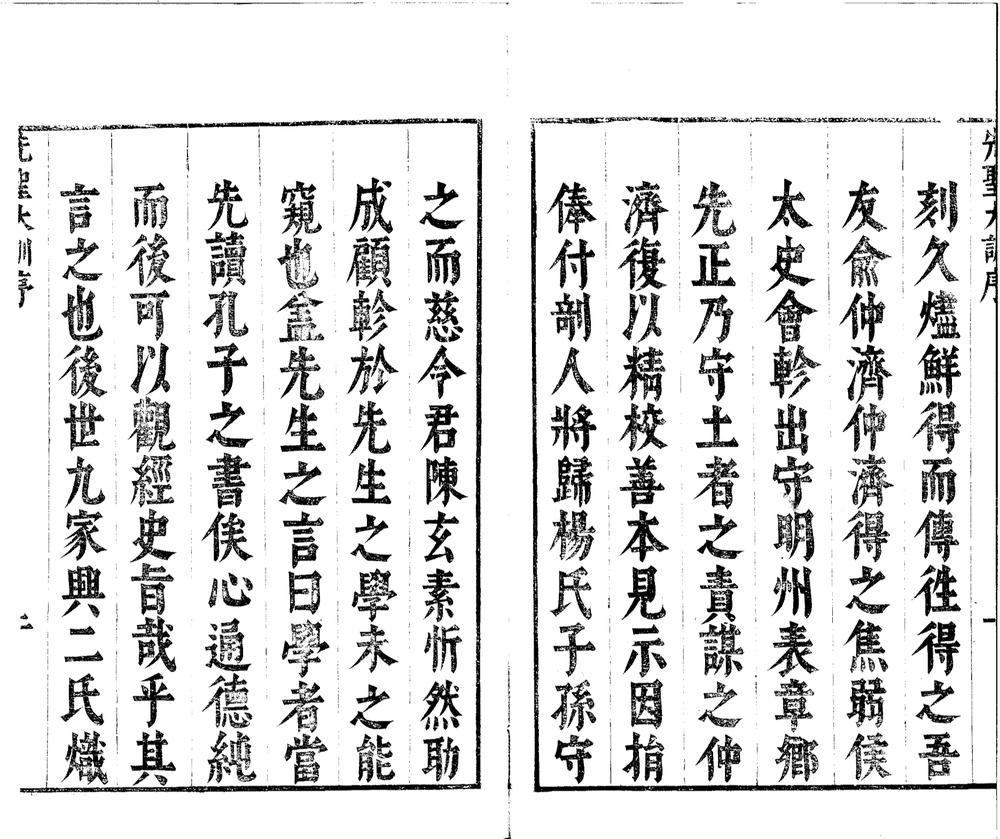 先聖大訓序
一
刻久燼鮮得而傳徃得之吾
友俞仲濟仲濟得之焦弱侯
太史會軫出守明州表章鄉
先正乃守土者之責謀之仲
濟復以精校善本見示因捐
俸付剞人將歸楊氏子孫守
之而慈令君陳玄素忻然助
成顧軫於先生之學未之能
窺也盖先生之言曰學者當
先讀孔子之書俟心通德純
而後可以觀經史旨哉乎其
言之也後世九家興二氏熾
先聖大訓序
二